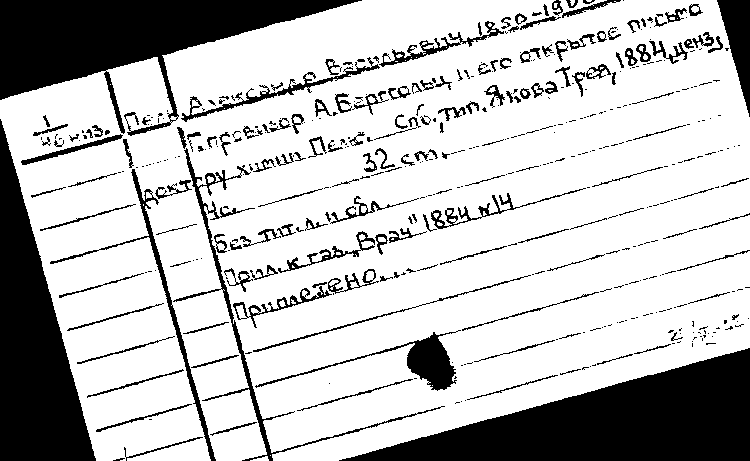 Пель, Александр Васильевич, 1850-190
1
46 киз.
Г. провизор А. Бергольц и его открытое письмо
доктору химии Пелю. Спб., тип. Якова Трея, 1884, ценз.
4с. 32 cm.
Без тит. л. и обл.
Прил. к газ. „Врач" 1884 №14
Приплетено...